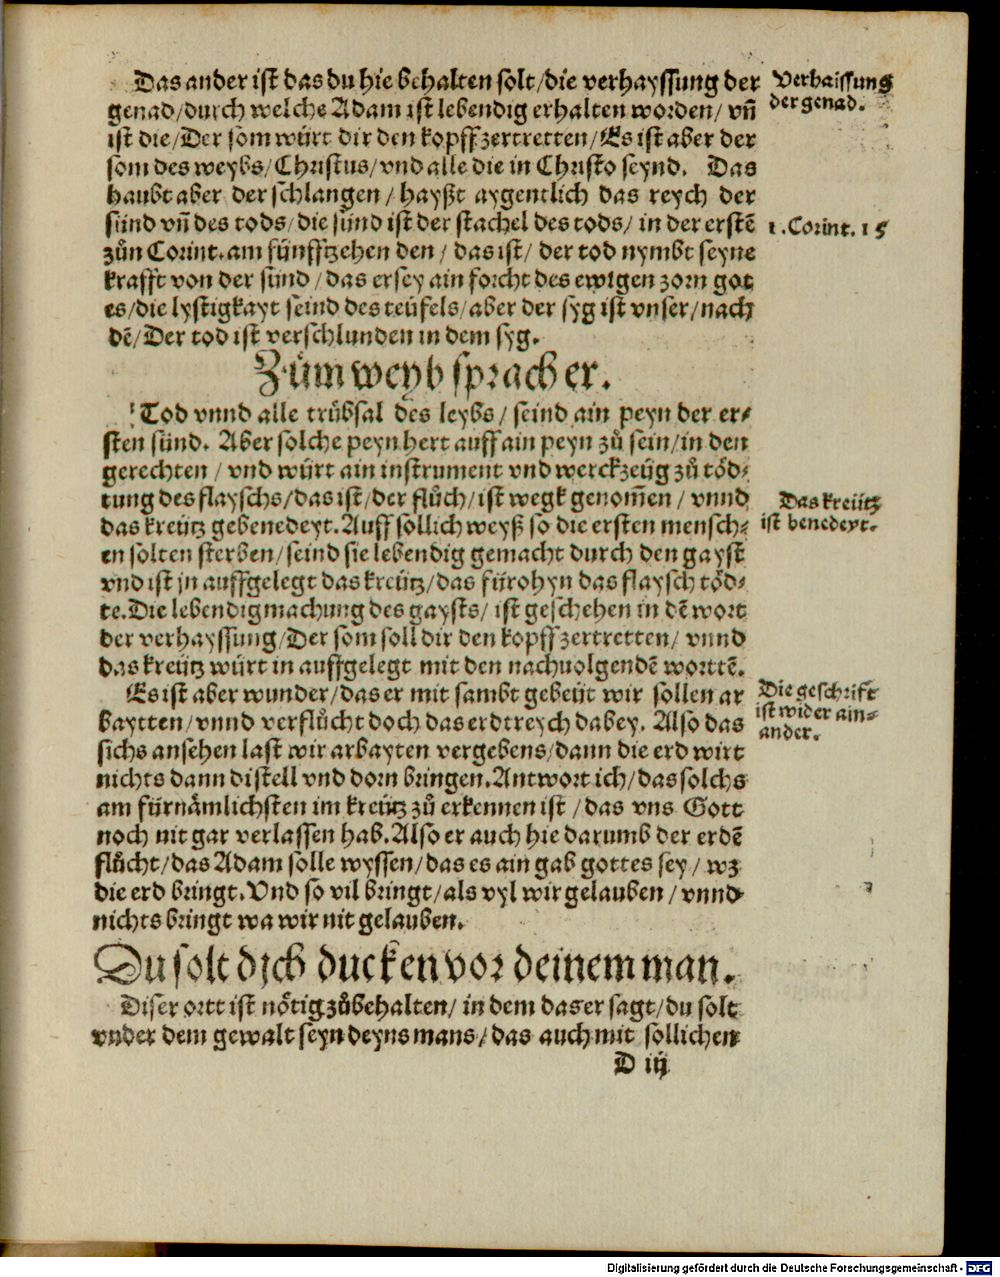 Das ander ist das du hie behalten solt/die verhayssung der
genad/durch welche Adam ist lebendig erhalten worden/ vñ
ist die/Der som würt dir den kopff zertretten/Es ist aber der
som des weybs/Christus/vnd alle die in Christo seynd. Das
haubt aber der schlangen/hayßt aygentlich das reych der
sünd vñ des tods/die sünd ist der stachel des tods/ in der erstẽ
zůn Corint. am fünfftzehen den/ das ist/ der tod nymbt seyne
krafft von der sünd/das er sey ain forcht des ewigen zorn got
es/die lystigkayt seind des teüfels/aber der syg ist vnser/nach
dẽ/Der tod ist verschlunden in dem syg.
Verhaissung
der genad.
1. Corint. 15
Zům weyb sprach er.
Tod vnnd alle trůbsal des leybs/ seind ain peyn der er⸗
sten sünd. Aber solche peyn hert auff ain peyn zů sein/in den
gerechten/ vnd würt ain instrument vnd werckzeüg zů töd⸗
tung des flayschs/das ist/der flůch/ist wegk genom̃en/ vnnd
das kreütz gebenedeyt. Auff sollich weyß so die ersten mensch⸗
en solten sterben/seind sie lebendig gemacht durch den gayst
vnd ist jn auffgelegt das kreütz/das fürohyn das flaysch töd⸗
te. Die lebendigmachung des gaysts/ ist geschehen in dẽ wort
der verhayssung/Der som soll dir den kopff zertretten/ vnnd
das kreütz würt in auffgelegt mit den nachuolgendẽ worttẽ.
Das kreütz
ist benedeyt.
Es ist aber wunder/das er mit sambt gebeüt wir sollen ar
baytten/vnnd verflůcht doch das erdtreych dabey. Also das
sichs ansehen last wir arbayten vergebens/dann die erd wirt
nichts dann distell vnd dorn bringen. Antwort ich/das solchs
am fürnämlichsten im kreütz zů erkennen ist/das vns Gott
noch nit gar verlassen hab. Also er auch hie darumb der erdẽ
flůcht/das Adam solle wyssen/das es ain gab gottes sey/ wz
die erd bringt. Vnd so vil bringt/als vyl wir gelauben/ vnnd
nichts bringt wa wir nit gelauben.
Die geschrift
ist wider ain⸗
ander.
Du solt dich ducken vor deinem man.
Diser ortt ist nötig zůbehalten/ in dem das er sagt/du solt
vnder dem gewalt seyn deyns mans/das auch mit sollichen
D iij
Digitalisierung gefördert durch die Deutsche Forschungsgemeinschaft - DFG